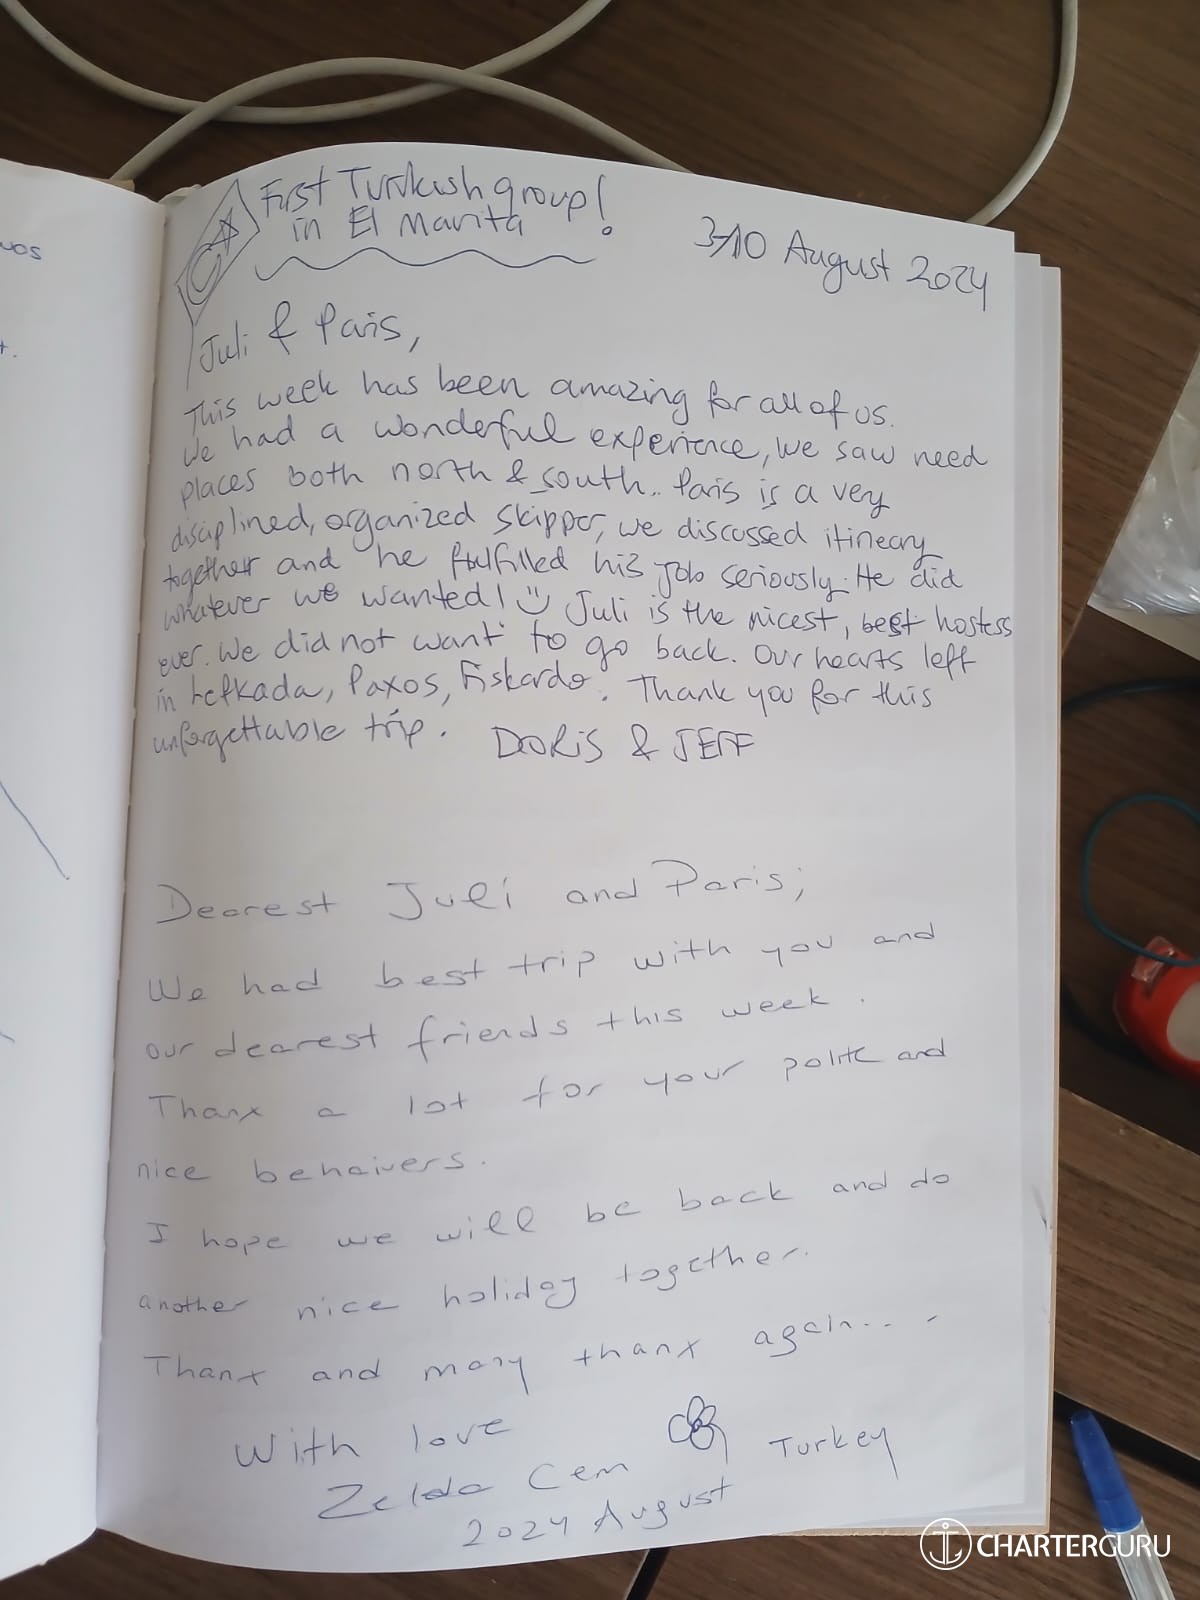 First Turkish group!
in El Marita
3-10 August 2024
Juli & Paris,
This week has been amazing for all of us.
We had a wonderful experience, we saw need
places both north & south.. Paris is a very
disciplined, organized skipper, we discussed itinecry
together and he fulfilled his job seriously. He did
whatever we wanted! Juli is the nicest, best hostess
ever. We did not want to go back. Our hearts left
in Lefkada, Paxos, Fiskardo. Thank you for this
unforgettable trip. DORIS & JEFF
Dearest Juli and Paris;
We had best trip with you and
our dearest friends this week.
Thanx a lot for your polite and
nice behaivers.
I hope we will be back and do
another nice holiday together.
Thanx and many thanx again...
With love
Zelda Cem Turkey
2024 August
CHARTERGURU